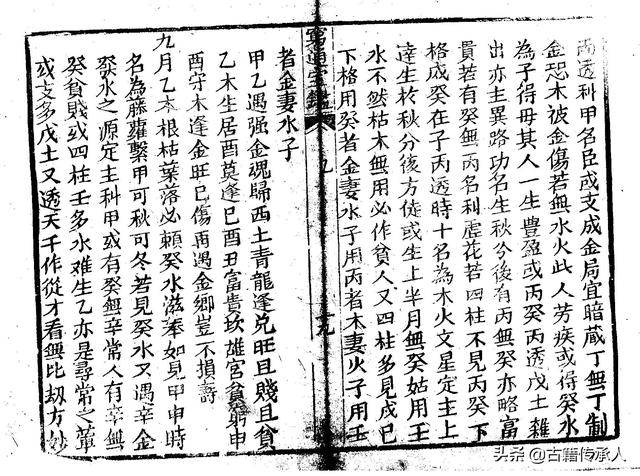 兩透科甲名臣或支成金局宜暗藏丁無丁制
金恐木被金傷若無水火此人芳疾或得癸水
為子得母其人一生豐盈或丙癸丙透戊土雜
出亦主異路功名生秋分後有丙無癸亦略富
貴若有癸無丙名利虛花若四柱不見丙癸下
格或癸在子丙透時十名為木火文星定主上
達生於秋分後方徒或生上半月無癸姑用壬
水不然枯木無用必作貧人又四柱多見戊己
下格用癸者金妻水子用丙者木妻火子用壬
窮通宝鑑
九
者金妻水子
甲乙遇强金魂歸西土青龍逢兌旺且賤且貧
乙木生居酉莫逢巳酉丑富貴坎雄宮貧窮申
酉守木逢金旺巳傷再遇金鄉豈不損壽
九月乙木根枯葉落必賴癸水滋養如見甲申時
名為藤蘿繫甲可秋可冬若見癸水又遇辛金
癸水之源定主科甲或有癸無辛常人有辛無
癸貧賤或四柱壬多水难生乙亦是尋常之輩
或支多戊土又透天干作從才看無比刼方妙
头条@古籍传承人